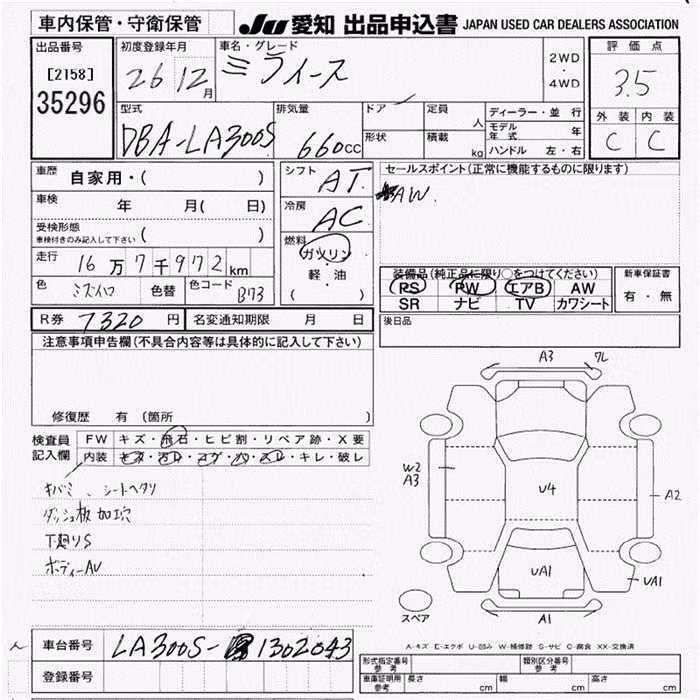 車内保管・守衛保管
JU 愛知 出品申込書 JAPAN USED CAR DEALERS ASSOCIATION
出品番号 初度登録年月 車名・グレード 評価点
[2158] 26 12月 ミライース 2WD・4WD 3.5
35296
外装 内装
C C
型式 排気量 ドア 定員 人 ディーラー・並行
DBA-LA300S 660cc 形状 積載 kg モデル年式 年
ハンドル 左・右
車歴 自家用・( )
シフト AT
セールスポイント(正常に機能するものに限ります)
AW.
車検 年 月( 日)
冷房 AC
受検形態
車検付きのみ記入して下さい ( )
燃料 ガソリン・軽油
( )
走行 16万7千972km
装備品(純正品に限り○をつけてください) 新車保証書
PS PW エアB AW 有・無
SR ナビ TV カワシート
色 ミズイロ 色替 色コード B73
後日品
R券 7320円 名変通知期限 月 日
注意事項申告欄(不具合内容等は具体的に記入して下さい)
修復歴 有(箇所 )
検査員記入欄 FW キズ・飛石・ヒビ割・リペア跡・X要
内装 キズ・汚レ・コゲ・穴・スレ・キレ・破レ
キバミ、シートヘタリ
ダッシュ板加工穴
下廻りS
ボディーAU
A3 フレ
W2
A3
U4
A2
UA1
UA1
A1
スペア
A-キズ E-エクボ U-凹み W-補修跡 S-サビ C-腐食 XX-交換済
車台番号 LA300S-1302043
登録番号
形式指定番号 参考 類別区分番号 参考
車庫証明用 参考 長さ cm 幅 cm 高さ cm